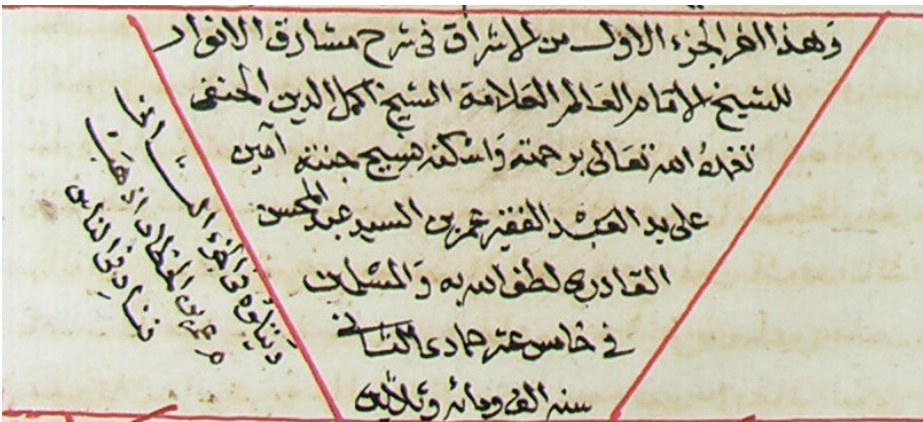 وهذا اخر الجزء الاول من الاشراق في شرح مشارق الانوار
للشيخ الامام العالم العلامة الشيخ اكمل الدين الحنفي
تغمده الله تعالى برحمته واسكنه فسيح جنته آمين
على يد العبد الفقير عمر بن السيد عبد المحسن
القادري لطف الله به والمسلمين
في خامس عشر جمادى الثاني
سنه الف ومائه وثلاثين
ويتلوه في الجزء الثاني
عمر بن الخطاب اذهب
فناد في الناس